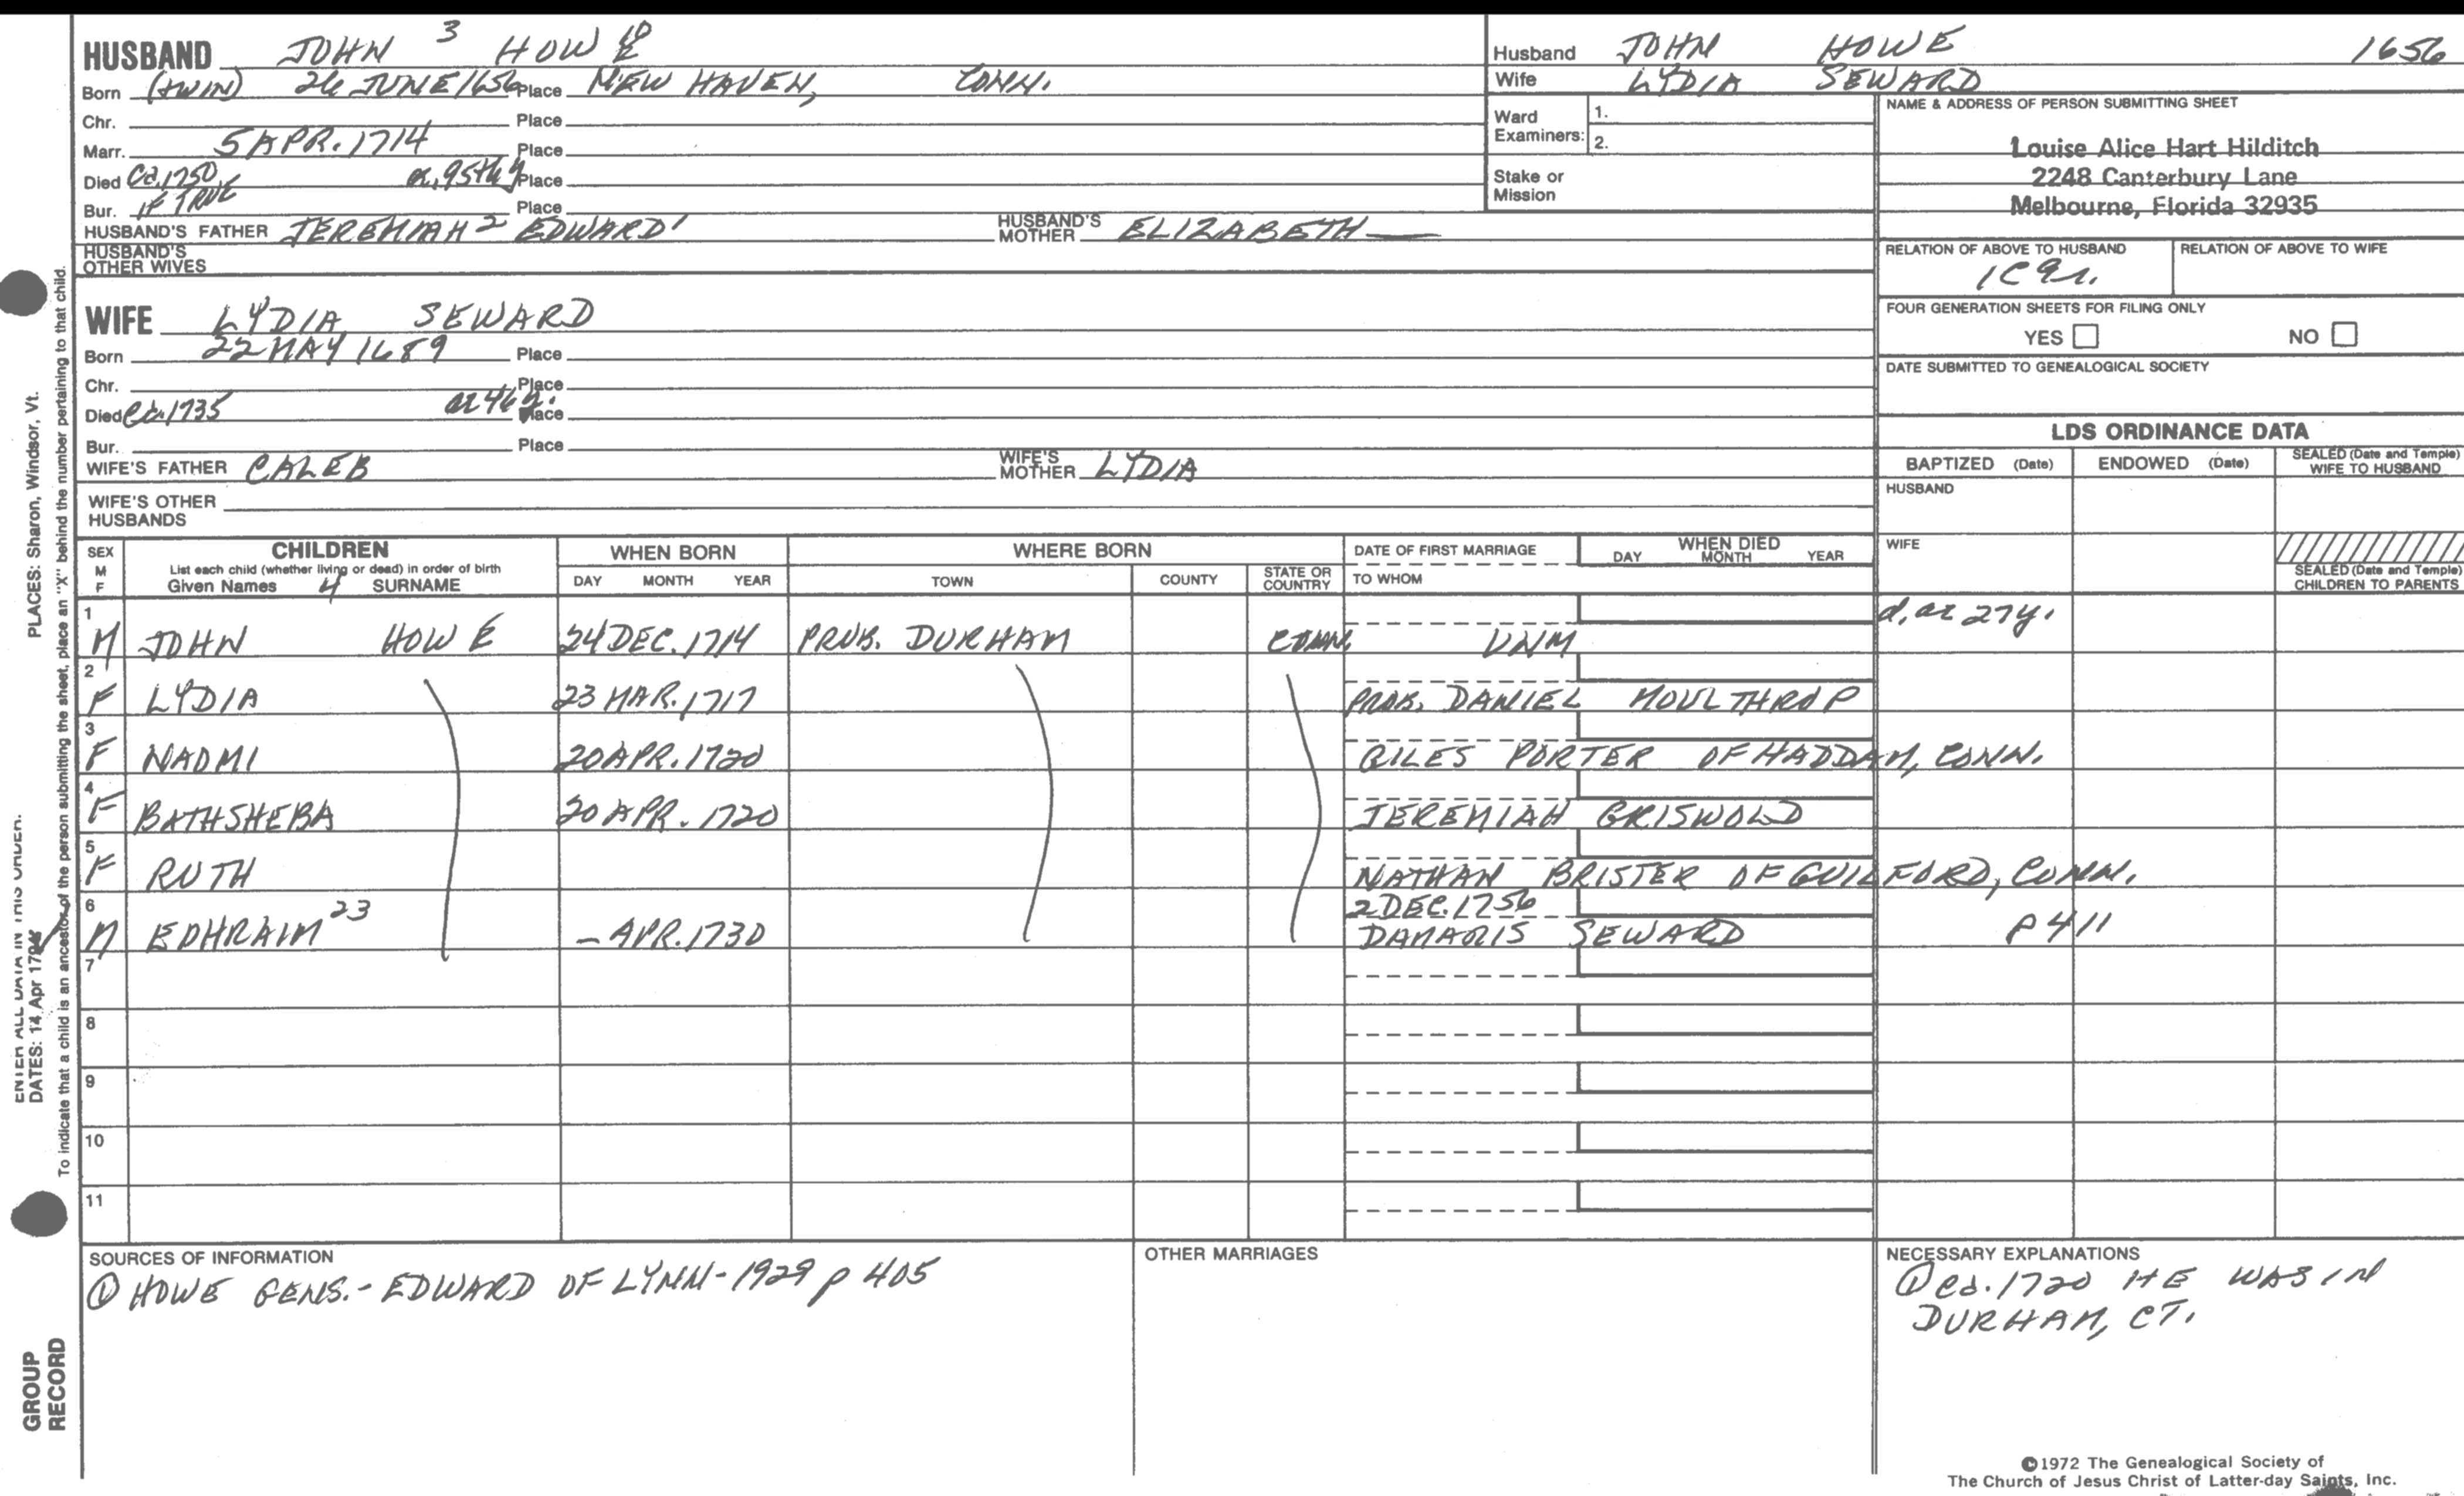 HUSBAND JOHN 3 HOWE
Born (TWIN) 26 JUNE 1656 Place NEW HAVEN, CONN.
Chr. Place
Marr. 5 APR. 1714 Place
Died Ca. 1750 Place
Bur. IF TRUE Place
HUSBAND'S FATHER JEREMIAH 2 EDWARD 1 HUSBAND'S MOTHER ELIZABETH —
HUSBAND'S OTHER WIVES
Husband JOHN HOWE 1656
Wife LYDIA SEWARD
Ward Examiners: 1. 2.
Stake or Mission
NAME & ADDRESS OF PERSON SUBMITTING SHEET
Louise Alice Hart Hilditch
2248 Canterbury Lane
Melbourne, Florida 32935
RELATION OF ABOVE TO HUSBAND RELATION OF ABOVE TO WIFE
FOUR GENERATION SHEETS FOR FILING ONLY
YES NO
DATE SUBMITTED TO GENEALOGICAL SOCIETY
WIFE LYDIA SEWARD
Born 22 MAY 1689 Place
Chr. Place
Died Ca. 1735 ae 46 y. Place
Bur. Place
WIFE'S FATHER CALEB WIFE'S MOTHER LYDIA
WIFE'S OTHER HUSBANDS
LDS ORDINANCE DATA
BAPTIZED (Date) ENDOWED (Date) SEALED (Date and Temple) WIFE TO HUSBAND
HUSBAND
WIFE
SEALED (Date and Temple) CHILDREN TO PARENTS
SEX M F
CHILDREN
List each child (whether living or dead) in order of birth
Given Names 4 SURNAME
WHEN BORN
DAY MONTH YEAR
WHERE BORN
TOWN COUNTY STATE OR COUNTRY
DATE OF FIRST MARRIAGE
TO WHOM
WHEN DIED
DAY MONTH YEAR
1 M JOHN HOWE 24 DEC. 1714 PROB. DURHAM CONN. UNM d. ae 27 y.
2 F LYDIA 23 MAR. 1717 PROB. DANIEL MOULTHROP
3 F NAOMI 20 APR. 1720 GILES PORTER OF HADDAM, CONN.
4 F BATHSHEBA 20 APR. 1720 JEREMIAH GRISWOLD
5 F RUTH NATHAN BRISTER OF GUILFORD, CONN.
6 M EPHRAIM 23 – APR. 1730 2 DEC. 1756 DAMARIS SEWARD P 411
7
8
9
10
11
SOURCES OF INFORMATION
① HOWE GENS. - EDWARD OF LYNN - 1929 p 405
OTHER MARRIAGES
NECESSARY EXPLANATIONS
① Ca. 1720 HE WAS IN
DURHAM, CT.
©1972 The Genealogical Society of
The Church of Jesus Christ of Latter-day Saints, Inc.
PLACES: Sharon, Windsor, Vt.
To indicate that a child is an ancestor of the person submitting the sheet, place an "X" behind the number pertaining to that child.
ENTER ALL DATA IN THIS ORDER:
DATES: 14 Apr
GROUP
RECORD